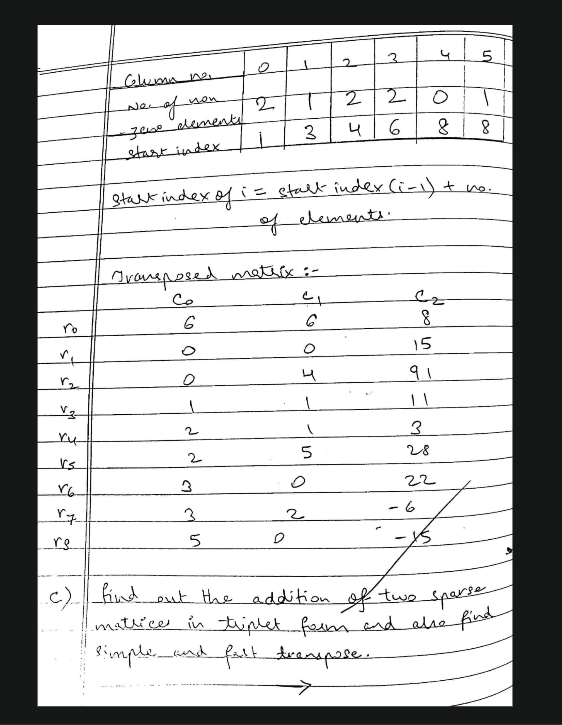 Column no. 0 1 2 3 4 5
No. of non
-zero elements 2 1 2 2 0 1
start index 1 3 4 6 8 8
start index of i = start index (i-1) + no.
of elements.
Transposed matrix :-
C0 C1 C2
r0 6 6 8
r1 0 0 15
r2 0 4 91
r3 1 1 11
r4 2 1 3
r5 2 5 28
r6 3 0 22
r7 3 2 -6
r8 5 0 -15
c) find out the addition of two sparse
matrices in triplet form and also find
simple and fast transpose.